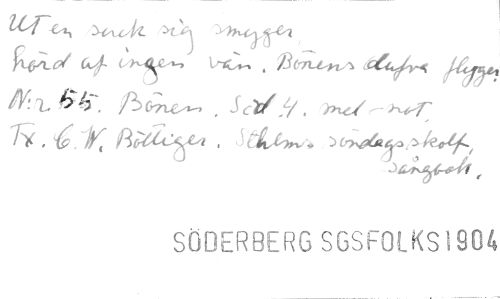 Ut en suck sig smyger,
hörd af ingen vän. Bönens dufva flyger.
N:r 55. Bönen. Sid 4. mel-not.
Tx. C. W. Böttiger. Sthlms söndagsskolf.
sångbok.
SÖDERBERG SGSFOLKS1904